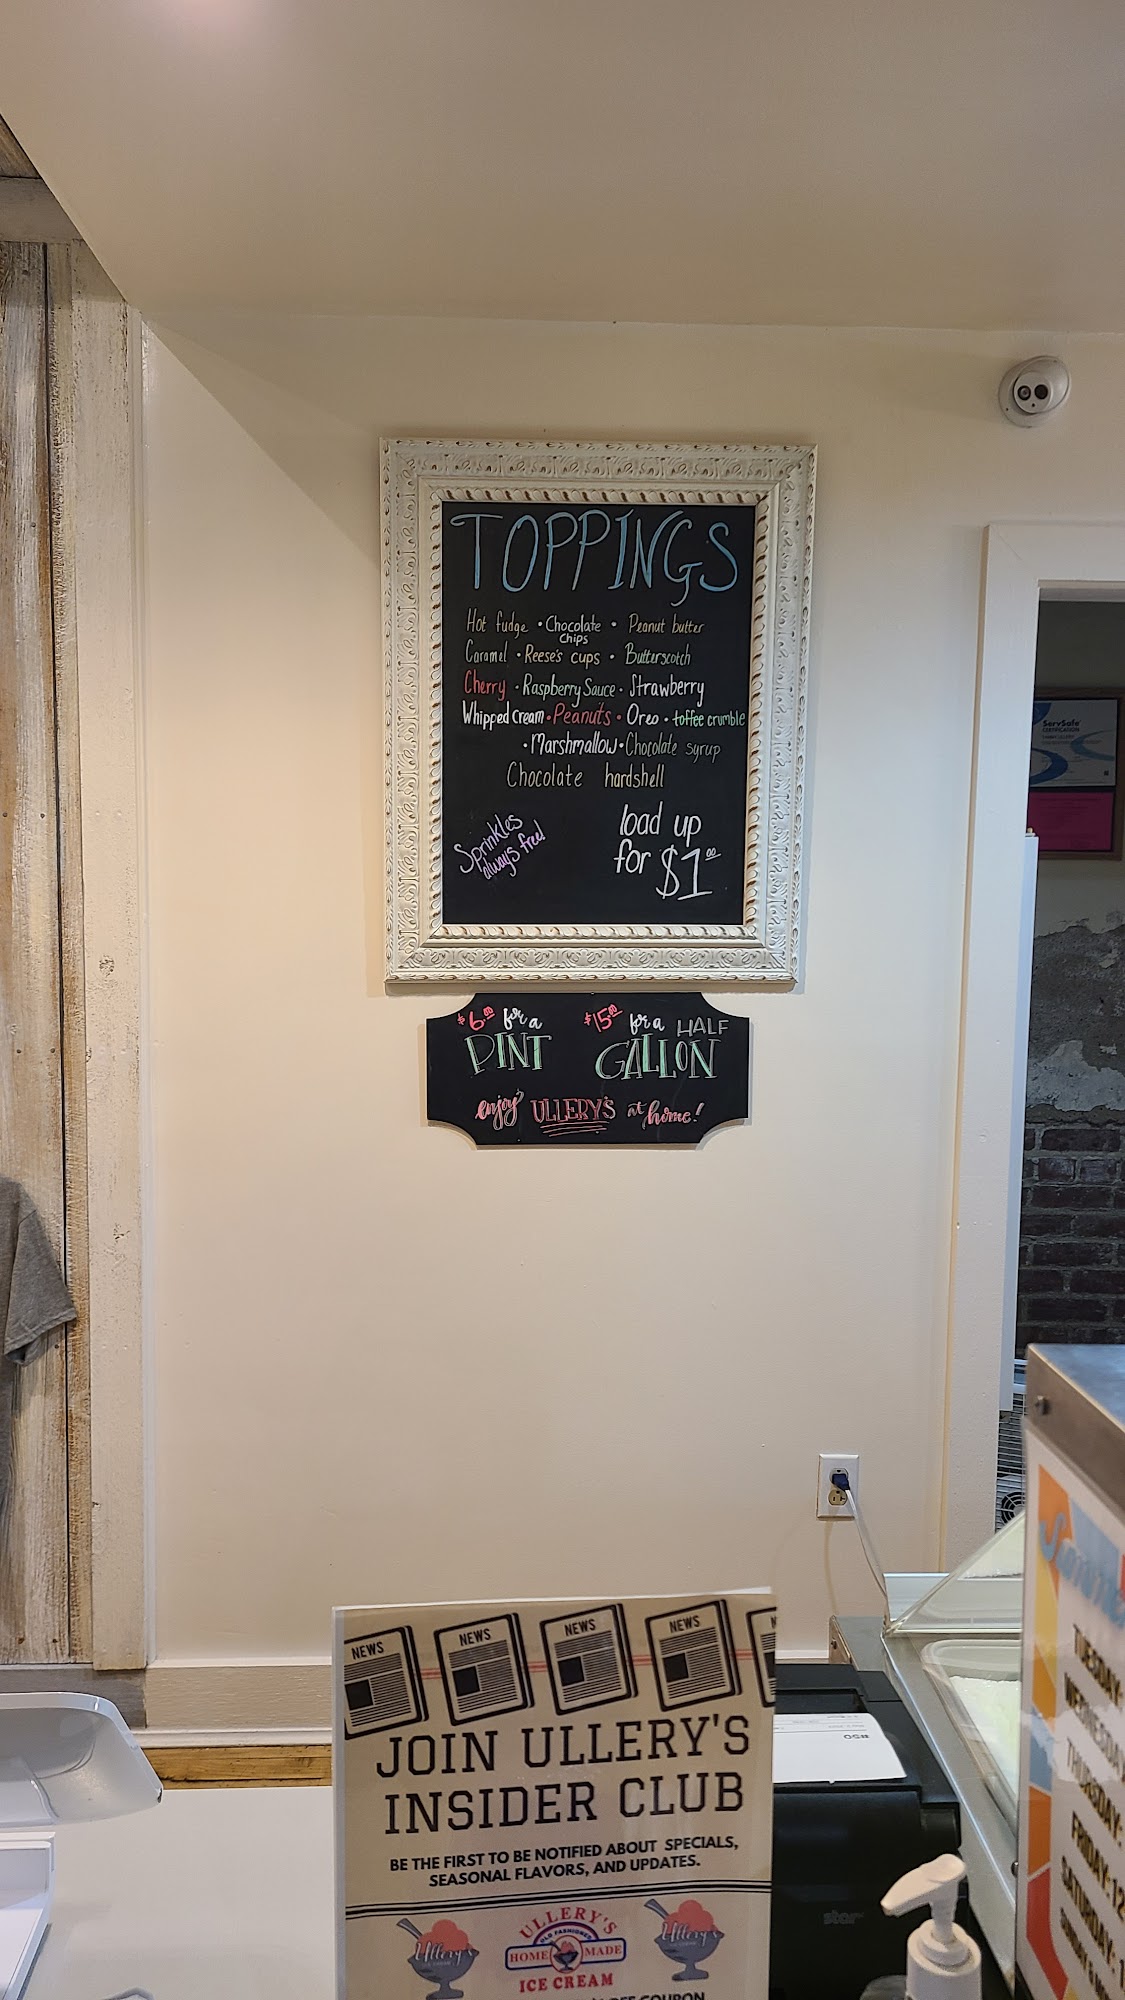 TOPPINGS
Hot fudge • Chocolate Chips • Peanut butter
Caramel • Reese's cups • Butterscotch
Cherry • Raspberry Sauce • Strawberry
Whipped cream • Peanuts • Oreo • toffee crumble
• Marshmallow • Chocolate syrup
Chocolate hardshell
Sprinkles always free!
load up
for $1.00
$6.00 for a
PINT
$15.00 for a HALF
GALLON
enjoy ULLERY'S at home!
ServSafe
CERTIFICATION
NEWS NEWS NEWS NEWS
JOIN ULLERY'S
INSIDER CLUB
BE THE FIRST TO BE NOTIFIED ABOUT SPECIALS,
SEASONAL FLAVORS, AND UPDATES.
Ullery's
ULLERY'S
OLD FASHIONED
HOME MADE
ICE CREAM
Ullery's
COUPON
star
TUESDAY
WEDNESDAY
THURSDAY
FRIDAY: 12
SATURDAY